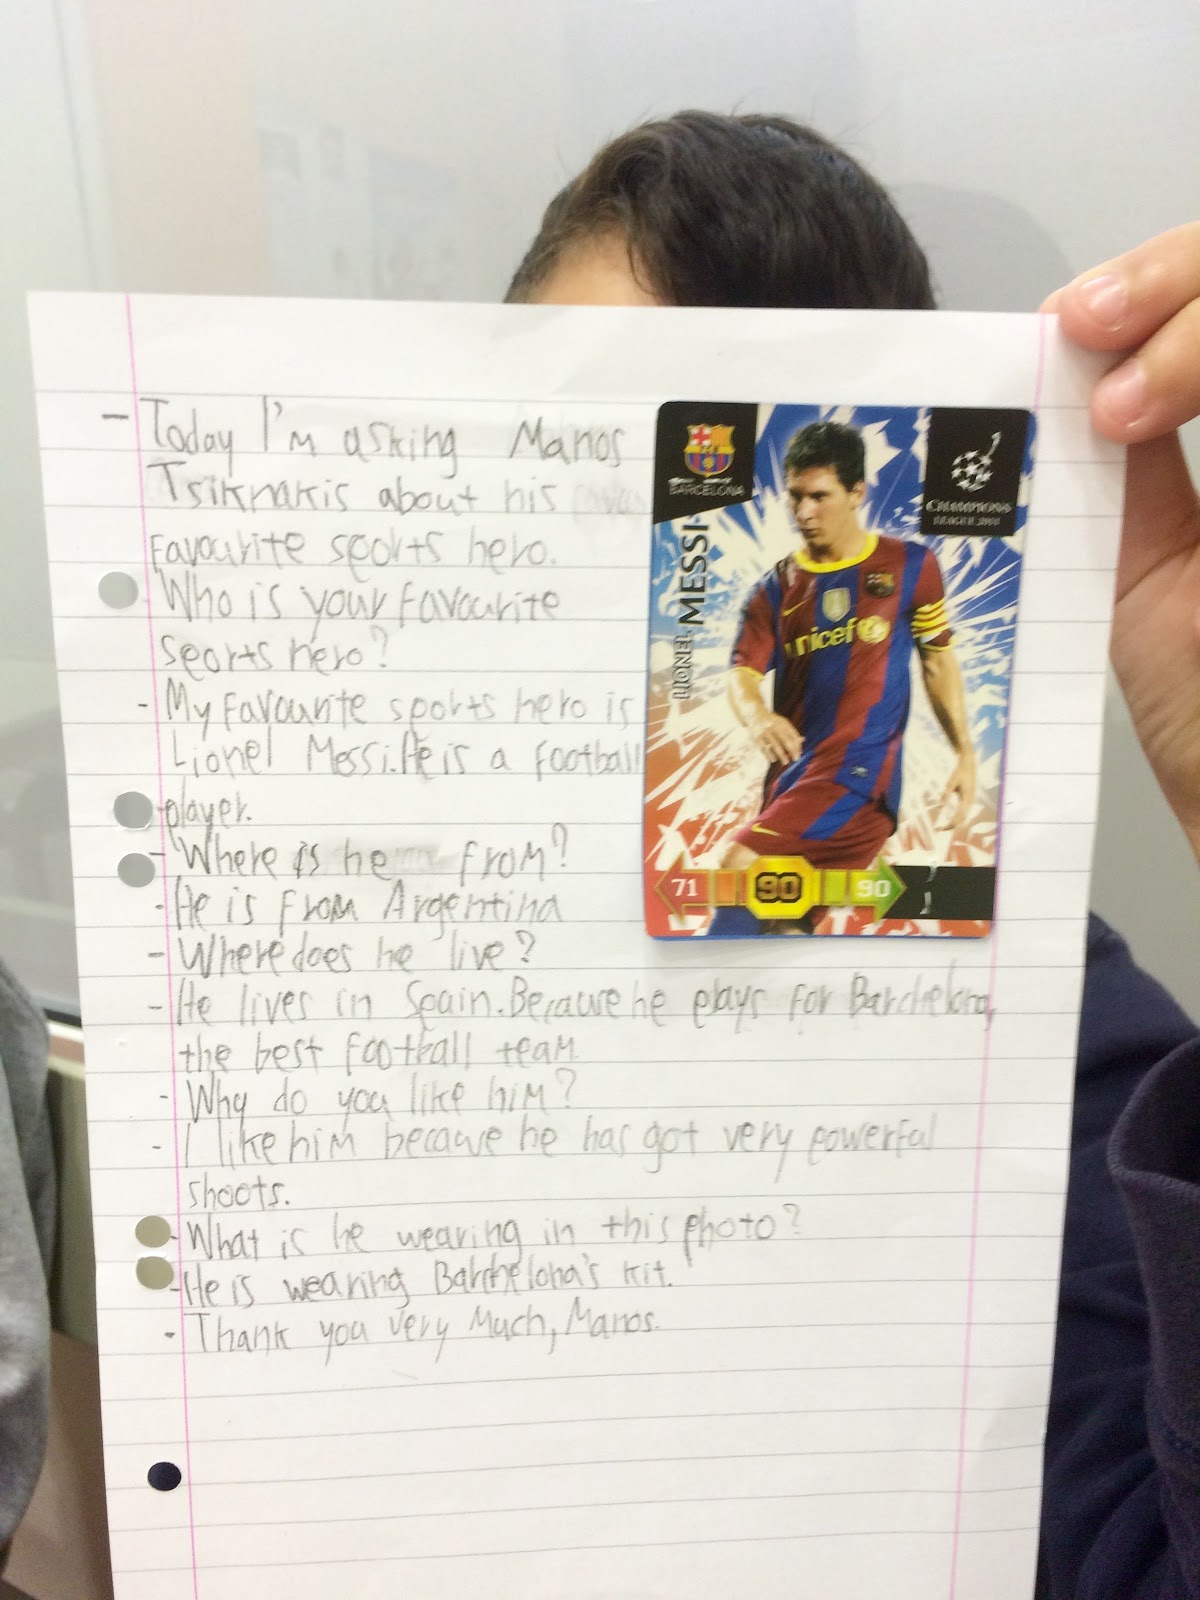 - Today I'm asking Manos
Tsiknakis about his
favourite sports hero.
Who is your favourite
sports hero?
- My favourite sports hero is
Lionel Messi. He is a football
player.
- Where is he from?
- He is from Argentina
- Where does he live?
- He lives in Spain. Because he plays for Barchelona,
the best football team.
- Why do you like him?
- I like him because he has got very powerful
shoots.
- What is he wearing in this photo?
- He is wearing Barchelona's kit.
- Thank you very much, Manos.
BARCELONA
CHAMPIONS
LEAGUE 2011
LIONEL MESSI
unicef
71 90 90